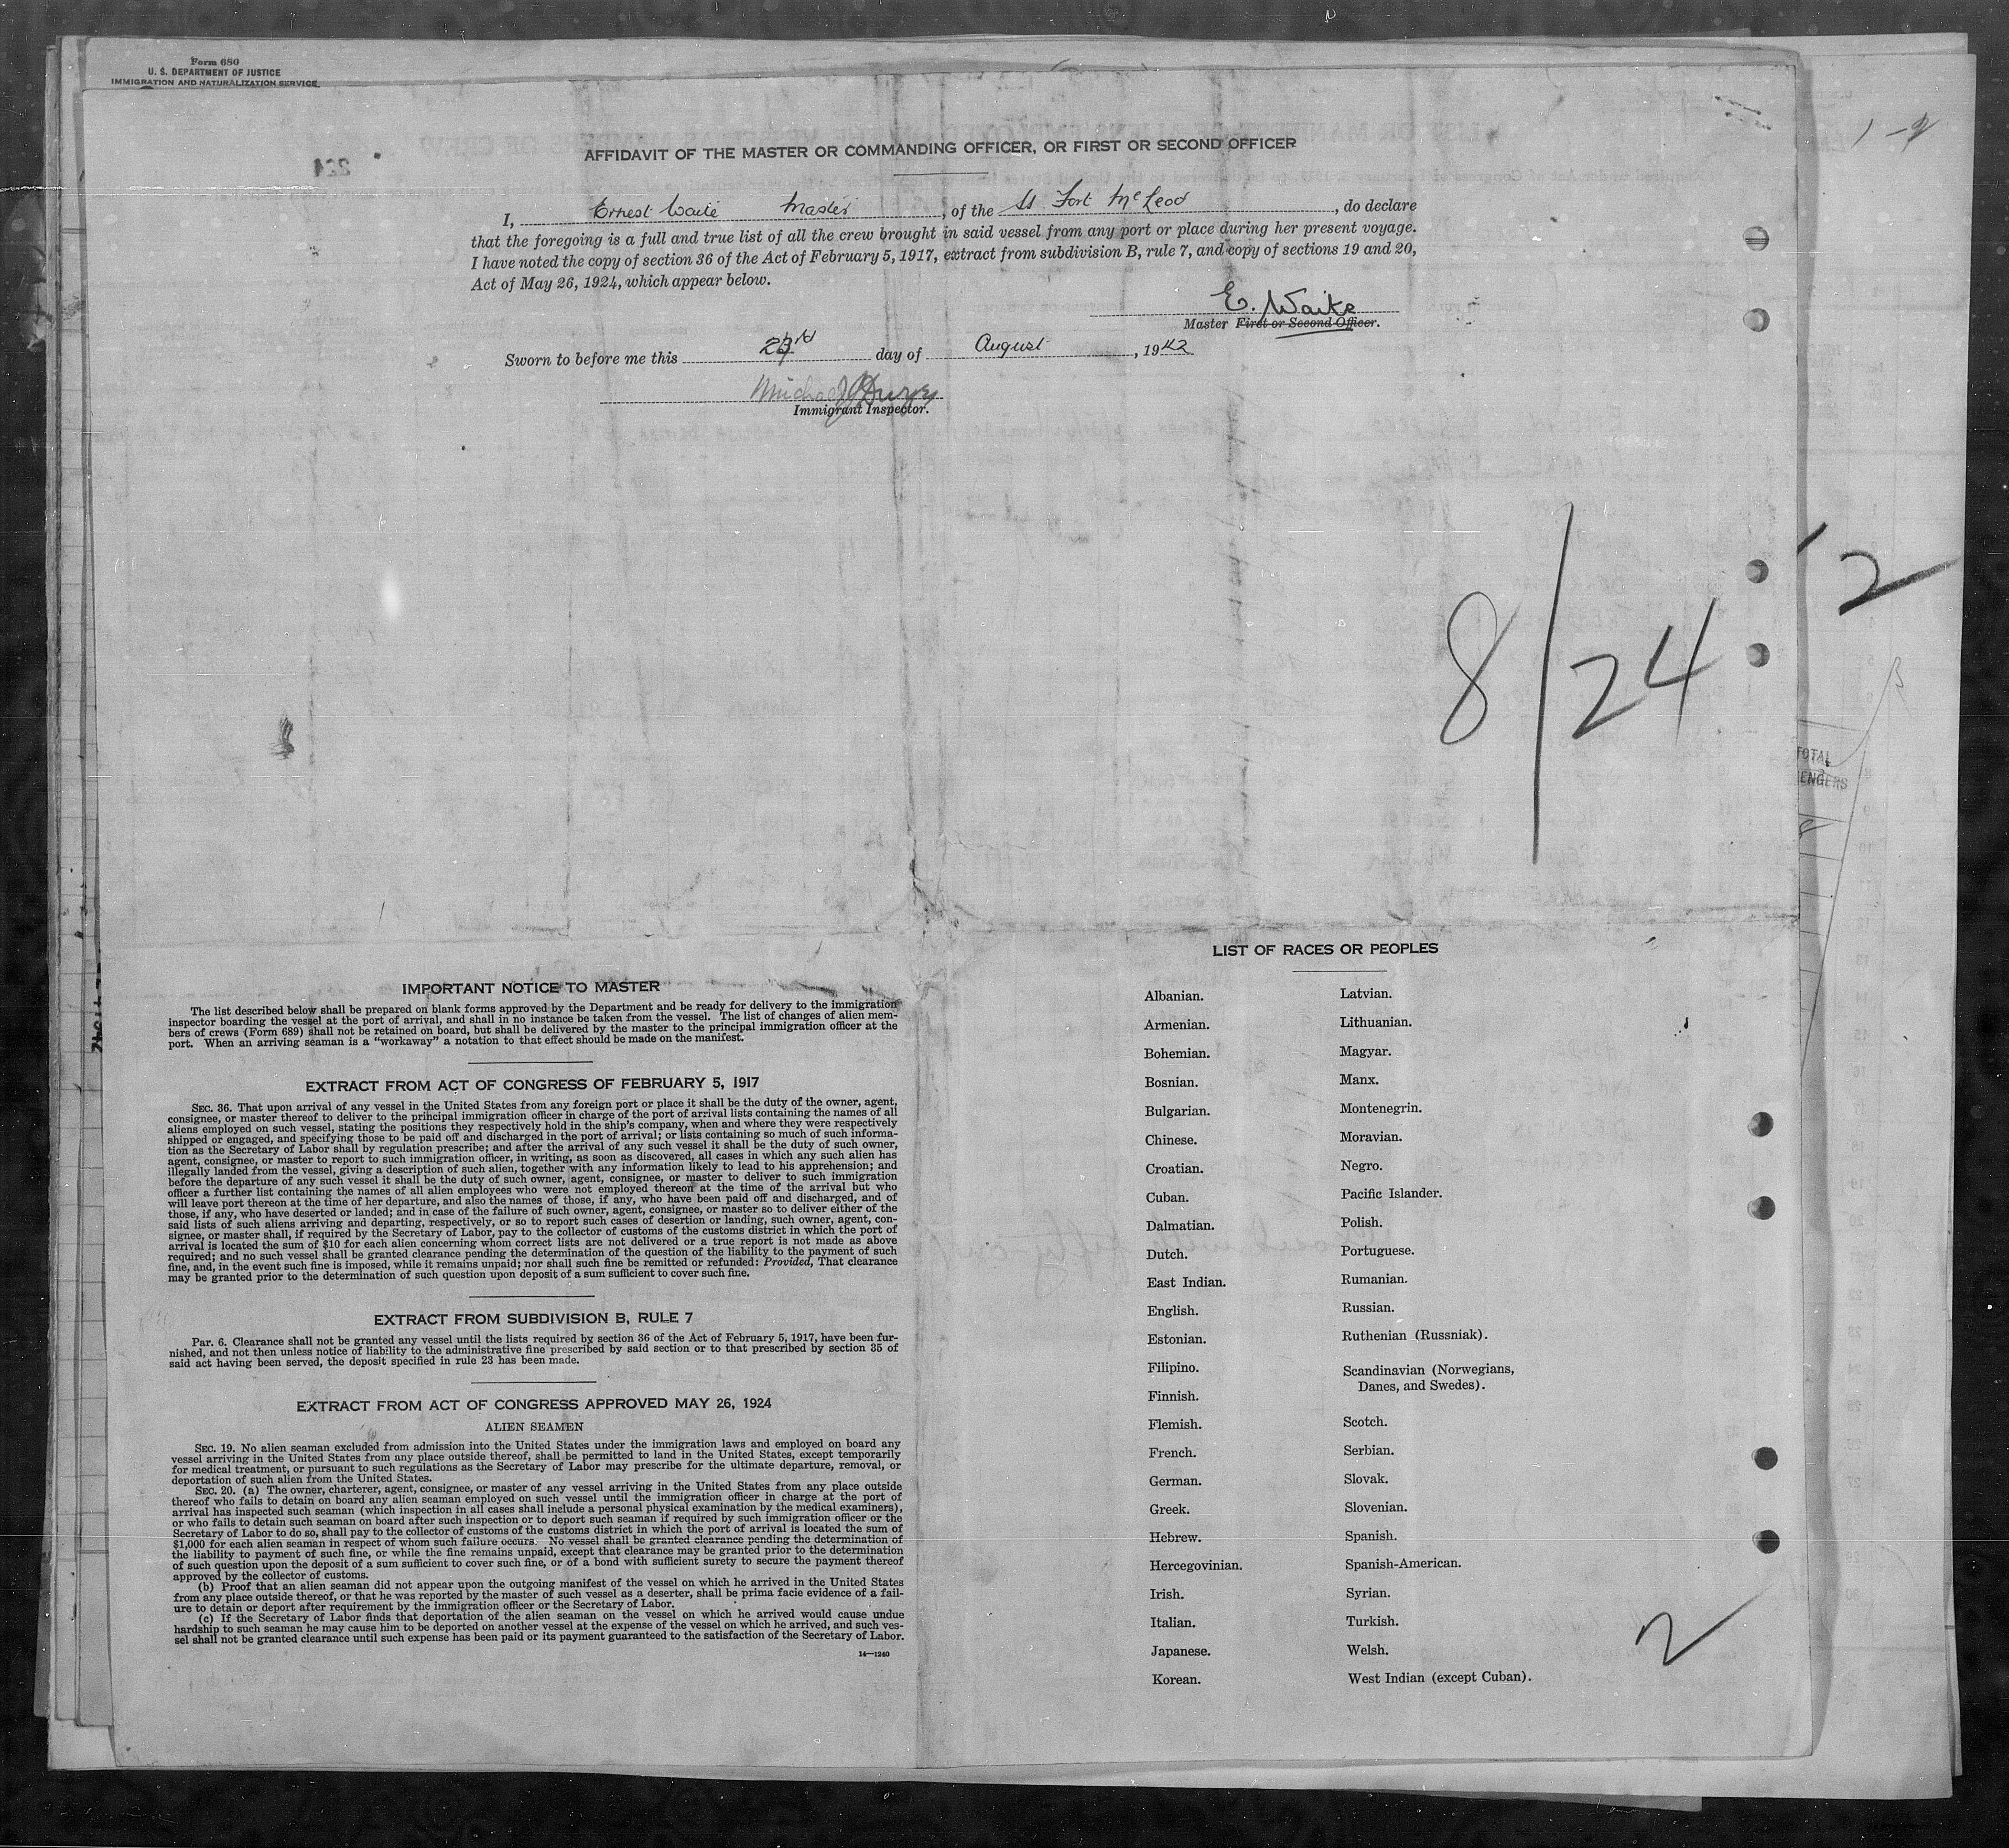 Form 680
U. S. DEPARTMENT OF JUSTICE
IMMIGRATION AND NATURALIZATION SERVICE
AFFIDAVIT OF THE MASTER OR COMMANDING OFFICER, OR FIRST OR SECOND OFFICER
I, Ernest Waite Master, of the SS Fort McLeod, do declare
that the foregoing is a full and true list of all the crew brought in said vessel from any port or place during her present voyage.
I have noted the copy of section 36 of the Act of February 5, 1917, extract from subdivision B, rule 7, and copy of sections 19 and 20,
Act of May 26, 1924, which appear below.
E. Waite
Master First or Second Officer.
Sworn to before me this day of August, 1942
Michael J
Immigrant Inspector.
8/24
2
TOTAL
ENGERS
IMPORTANT NOTICE TO MASTER
The list described below shall be prepared on blank forms approved by the Department and be ready for delivery to the immigration
inspector boarding the vessel at the port of arrival, and shall in no instance be taken from the vessel. The list of changes of alien mem-
bers of crews (Form 689) shall not be retained on board, but shall be delivered by the master to the principal immigration officer at the
port. When an arriving seaman is a "workaway" a notation to that effect should be made on the manifest.
EXTRACT FROM ACT OF CONGRESS OF FEBRUARY 5, 1917
SEC. 36. That upon arrival of any vessel in the United States from any foreign port or place it shall be the duty of the owner, agent,
consignee, or master thereof to deliver to the principal immigration officer in charge of the port of arrival lists containing the names of all
aliens employed on such vessel, stating the positions they respectively hold in the ship's company, when and where they were respectively
shipped or engaged, and specifying those to be paid off and discharged in the port of arrival; or lists containing so much of such informa-
tion as the Secretary of Labor shall by regulation prescribe; and after the arrival of any such vessel it shall be the duty of such owner,
agent, consignee, or master to report to such immigration officer, in writing, as soon as discovered, all cases in which any such alien has
illegally landed from the vessel, giving a description of such alien, together with any information likely to lead to his apprehension; and
before the departure of any such vessel it shall be the duty of such owner, agent, consignee, or master to deliver to such immigration
officer a further list containing the names of all alien employees who were not employed thereon at the time of the arrival but who
will leave port thereon at the time of her departure, and also the names of those, if any, who have been paid off and discharged, and of
those, if any, who have deserted or landed; and in case of the failure of such owner, agent, consignee, or master so to deliver either of the
said lists of such aliens arriving and departing, respectively, or so to report such cases of desertion or landing, such owner, agent, con-
signee, or master shall, if required by the Secretary of Labor, pay to the collector of customs of the customs district in which the port of
arrival is located the sum of $10 for each alien concerning whom correct lists are not delivered or a true report is not made as above
required; and no such vessel shall be granted clearance pending the determination of the question of the liability to the payment of such
fine, and, in the event such fine is imposed, while it remains unpaid; nor shall such fine be remitted or refunded: Provided, That clearance
may be granted prior to the determination of such question upon deposit of a sum sufficient to cover such fine.
EXTRACT FROM SUBDIVISION B, RULE 7
Par. 6. Clearance shall not be granted any vessel until the lists required by section 36 of the Act of February 5, 1917, have been fur-
nished, and not then unless notice of liability to the administrative fine prescribed by said section or to that prescribed by section 35 of
said act having been served, the deposit specified in rule 23 has been made.
EXTRACT FROM ACT OF CONGRESS APPROVED MAY 26, 1924
ALIEN SEAMEN
SEC. 19. No alien seaman excluded from admission into the United States under the immigration laws and employed on board any
vessel arriving in the United States from any place outside thereof, shall be permitted to land in the United States, except temporarily
for medical treatment, or pursuant to such regulations as the Secretary of Labor may prescribe for the ultimate departure, removal, or
deportation of such alien from the United States.
SEC. 20. (a) The owner, charterer, agent, consignee, or master of any vessel arriving in the United States from any place outside
thereof who fails to detain on board any alien seaman employed on such vessel until the immigration officer in charge at the port of
arrival has inspected such seaman (which inspection in all cases shall include a personal physical examination by the medical examiners),
or who fails to detain such seaman on board after such inspection or to deport such seaman if required by such immigration officer or the
Secretary of Labor to do so, shall pay to the collector of customs of the customs district in which the port of arrival is located the sum of
$1,000 for each alien seaman in respect of whom such failure occurs. No vessel shall be granted clearance pending the determination of
the liability to payment of such fine, or while the fine remains unpaid, except that clearance may be granted prior to the determination
of such question upon the deposit of a sum sufficient to cover such fine, or of a bond with sufficient surety to secure the payment thereof
approved by the collector of customs.
(b) Proof that an alien seaman did not appear upon the outgoing manifest of the vessel on which he arrived in the United States
from any place outside thereof, or that he was reported by the master of such vessel as a deserter, shall be prima facie evidence of a fail-
ure to detain or deport after requirement by the immigration officer or the Secretary of Labor.
(c) If the Secretary of Labor finds that deportation of the alien seaman on the vessel on which he arrived would cause undue
hardship to such seaman he may cause him to be deported on another vessel at the expense of the vessel on which he arrived, and such ves-
sel shall not be granted clearance until such expense has been paid or its payment guaranteed to the satisfaction of the Secretary of Labor.
14—1240
LIST OF RACES OR PEOPLES
Albanian.
Armenian.
Bohemian.
Bosnian.
Bulgarian.
Chinese.
Croatian.
Cuban.
Dalmatian.
Dutch.
East Indian.
English.
Estonian.
Filipino.
Finnish.
Flemish.
French.
German.
Greek.
Hebrew.
Hercegovinian.
Irish.
Italian.
Japanese.
Korean.
Latvian.
Lithuanian.
Magyar.
Manx.
Montenegrin.
Moravian.
Negro.
Pacific Islander.
Polish.
Portuguese.
Rumanian.
Russian.
Ruthenian (Russniak).
Scandinavian (Norwegians,
Danes, and Swedes).
Scotch.
Serbian.
Slovak.
Slovenian.
Spanish.
Spanish-American.
Syrian.
Turkish.
Welsh.
West Indian (except Cuban).
2